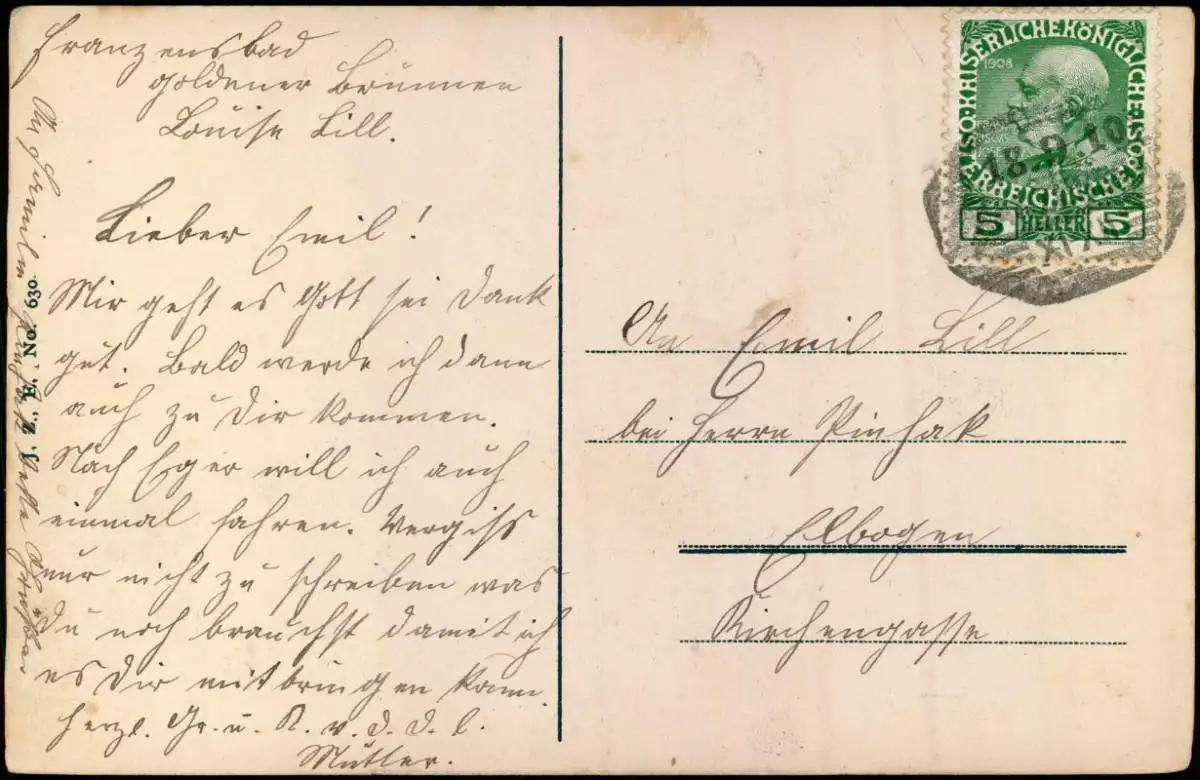 Franzensbad
goldener Brunnen
Louise Lill.
Lieber Emil!
Mir geht es Gott sei Dank
gut. Bald werde ich dann
auch zu Dir kommen.
Nach Eger will ich auch
einmal fahren. Vergiss
nur nicht zu schreiben was
Du noch brauchst damit ich
es Dir mitbringen kann.
herzl. Gr. u. K. v. d. D. l.
Mutter.
An Familie beste Grüße.
J. Z., E. No. 630.
1908
K·K·ÖSTERREICHISCHE
KAISERLICHE KÖNIGLICHE
5 HELLER 5
18.9.10
An Emil Lill
bei Herrn Pinhak
Elbogen
Kirchengasse